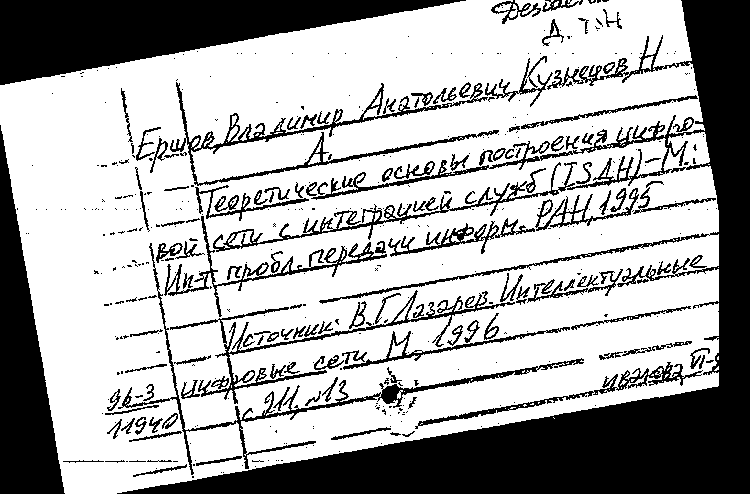 Д.Т.Н
Ершов, Владимир Анатольевич, Кузнецов, Н
А.
Теоретические основы построения цифро-
вой сети с интеграцией служб (ISДН)-М.:
Ин-т пробл. передачи информ. РАН, 1995
Источник: В.Г. Лазарев. Интеллектуальные
цифровые сети М., 1996
96-3
11940
с 211, №13